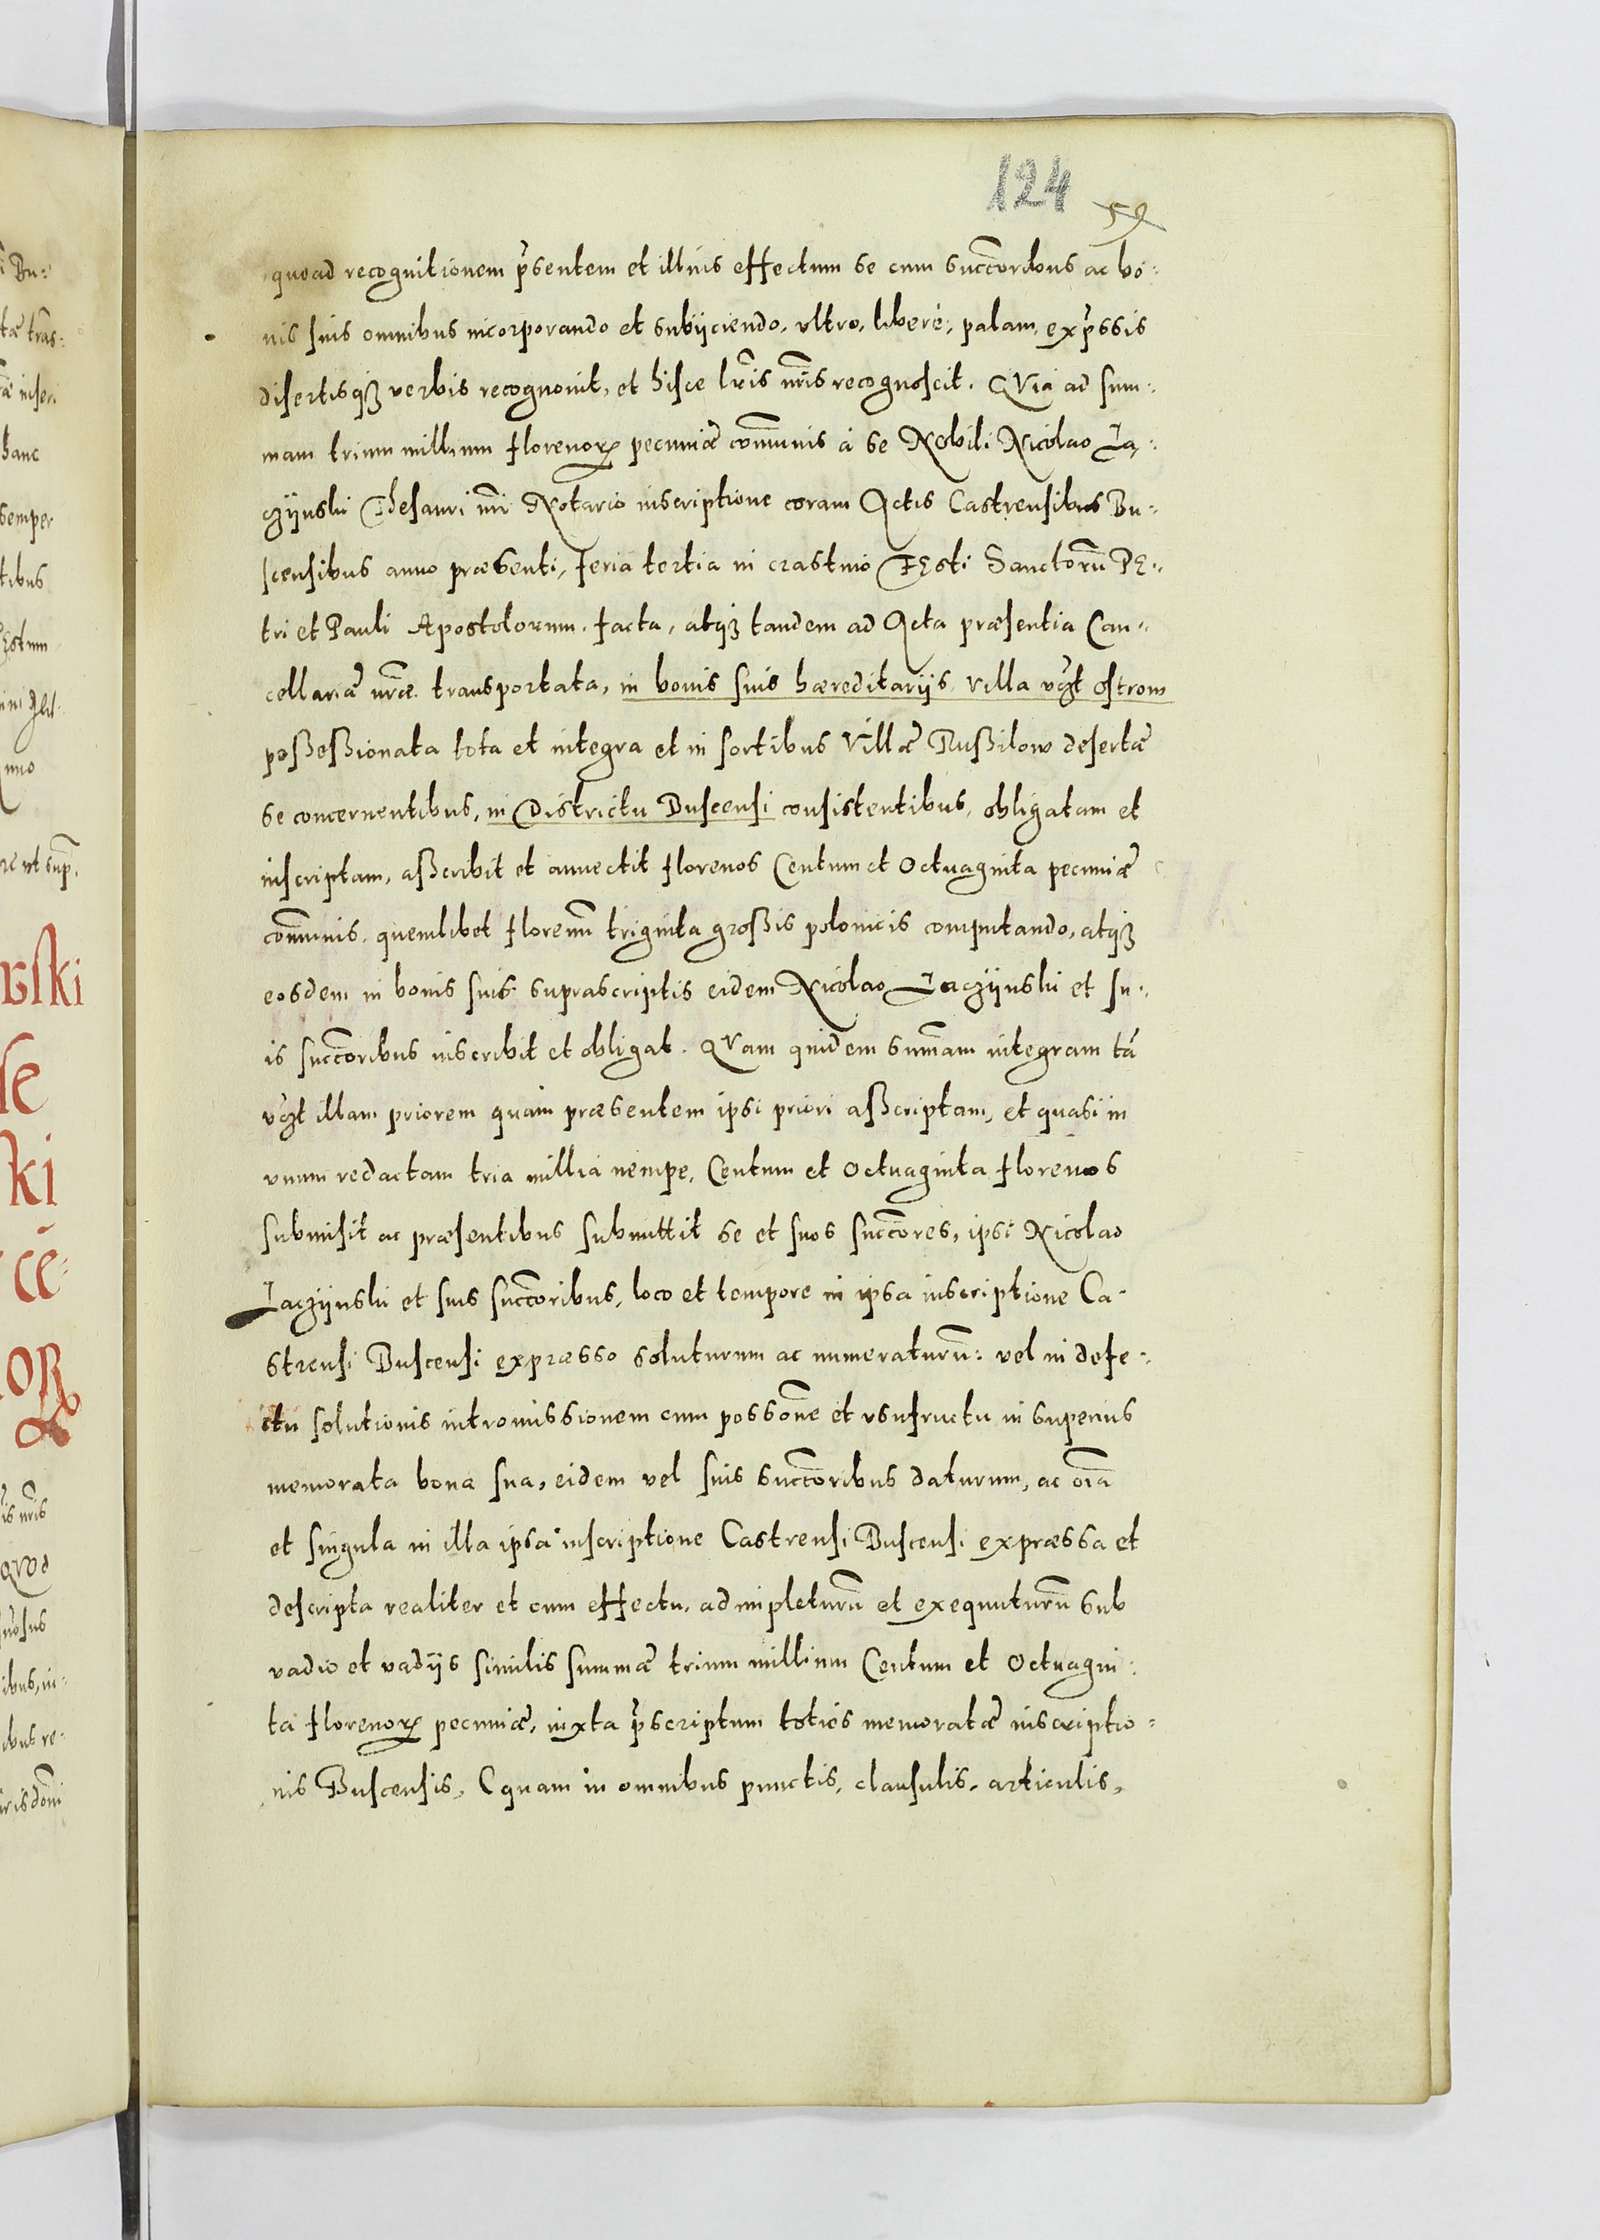 124
59
quoad recognitionem p̃sentem et illius effectum se cum succ̃oribus ac bo:
nis suis omnibus incorporando et subijciendo, ultro, liberè, palam, exp̃ssis
disertisq3 verbis recognovit, et hisce lr̃is nr̃is recognoscit. QVia ad sum:
mam trium millium florenoꝝ pecuniæ com̃unis à se Nobili Nicolao Ła:
czijnski Thesauri nr̃i Notario inscriptione coram Actis Castrensibus Bu:
scensibus anno præsenti, feria tertia in crastino FEsti Sanctorũ PE:
tri et Pauli Apostolorum. facta, atq3 tandem ad Acta præsentia Can:
cellariæ nr̃æ transportata, in bonis suis hæreditarijs, villa vꝫt Ostrow
poßeßionata tota et integra et in sortibus Villæ Rußilow desertæ
se concernentibus, in Districtu Buscensi consistentibus, obligatam et
inscriptam, aßcribit et annectit florenos Centum et Octuaginta pecuniæ
com̃unis, quemlibet florenũ triginta großis polonicis computando, atq3
eosdem in bonis suis suprascriptis eidem Nicolao Łaczijnski et su:
is succ̃oribus inscribit et obligat. QVam quidem sum̃am integram tã
vꝫt illam priorem quam præsentem ipsi priori aßcriptam, et quasi in
unum redactam tria millia nempe, Centum et Octuaginta florenos
submisit ac præsentibus submittit se et suos succ̃ores, ipsi Nicolao
Łaczijnski et suis succ̃oribus, loco et tempore in ipsa inscriptione Ca:
strensi Buscensi expræsso soluturum ac numeraturũ: vel in defe:
ctu solutionis intromissionem cum possõne et usufructu in superius
memorata bona sua, eidem vel suis succ̃oribus daturum, ac oĩa
et singula in illa ipsa inscriptione Castrensi Buscensi expræssa et
descripta realiter et cum effectu, adimpleturũ et exequuturũ sub
vadio et vadijs similis summæ trium millium Centum et Octuagin:
ta florenoꝝ pecuniæ, iuxta p̃scriptum toties memoratæ inscriptio:
nis Buscensis, (quam in omnibus punctis, clausulis, articulis,